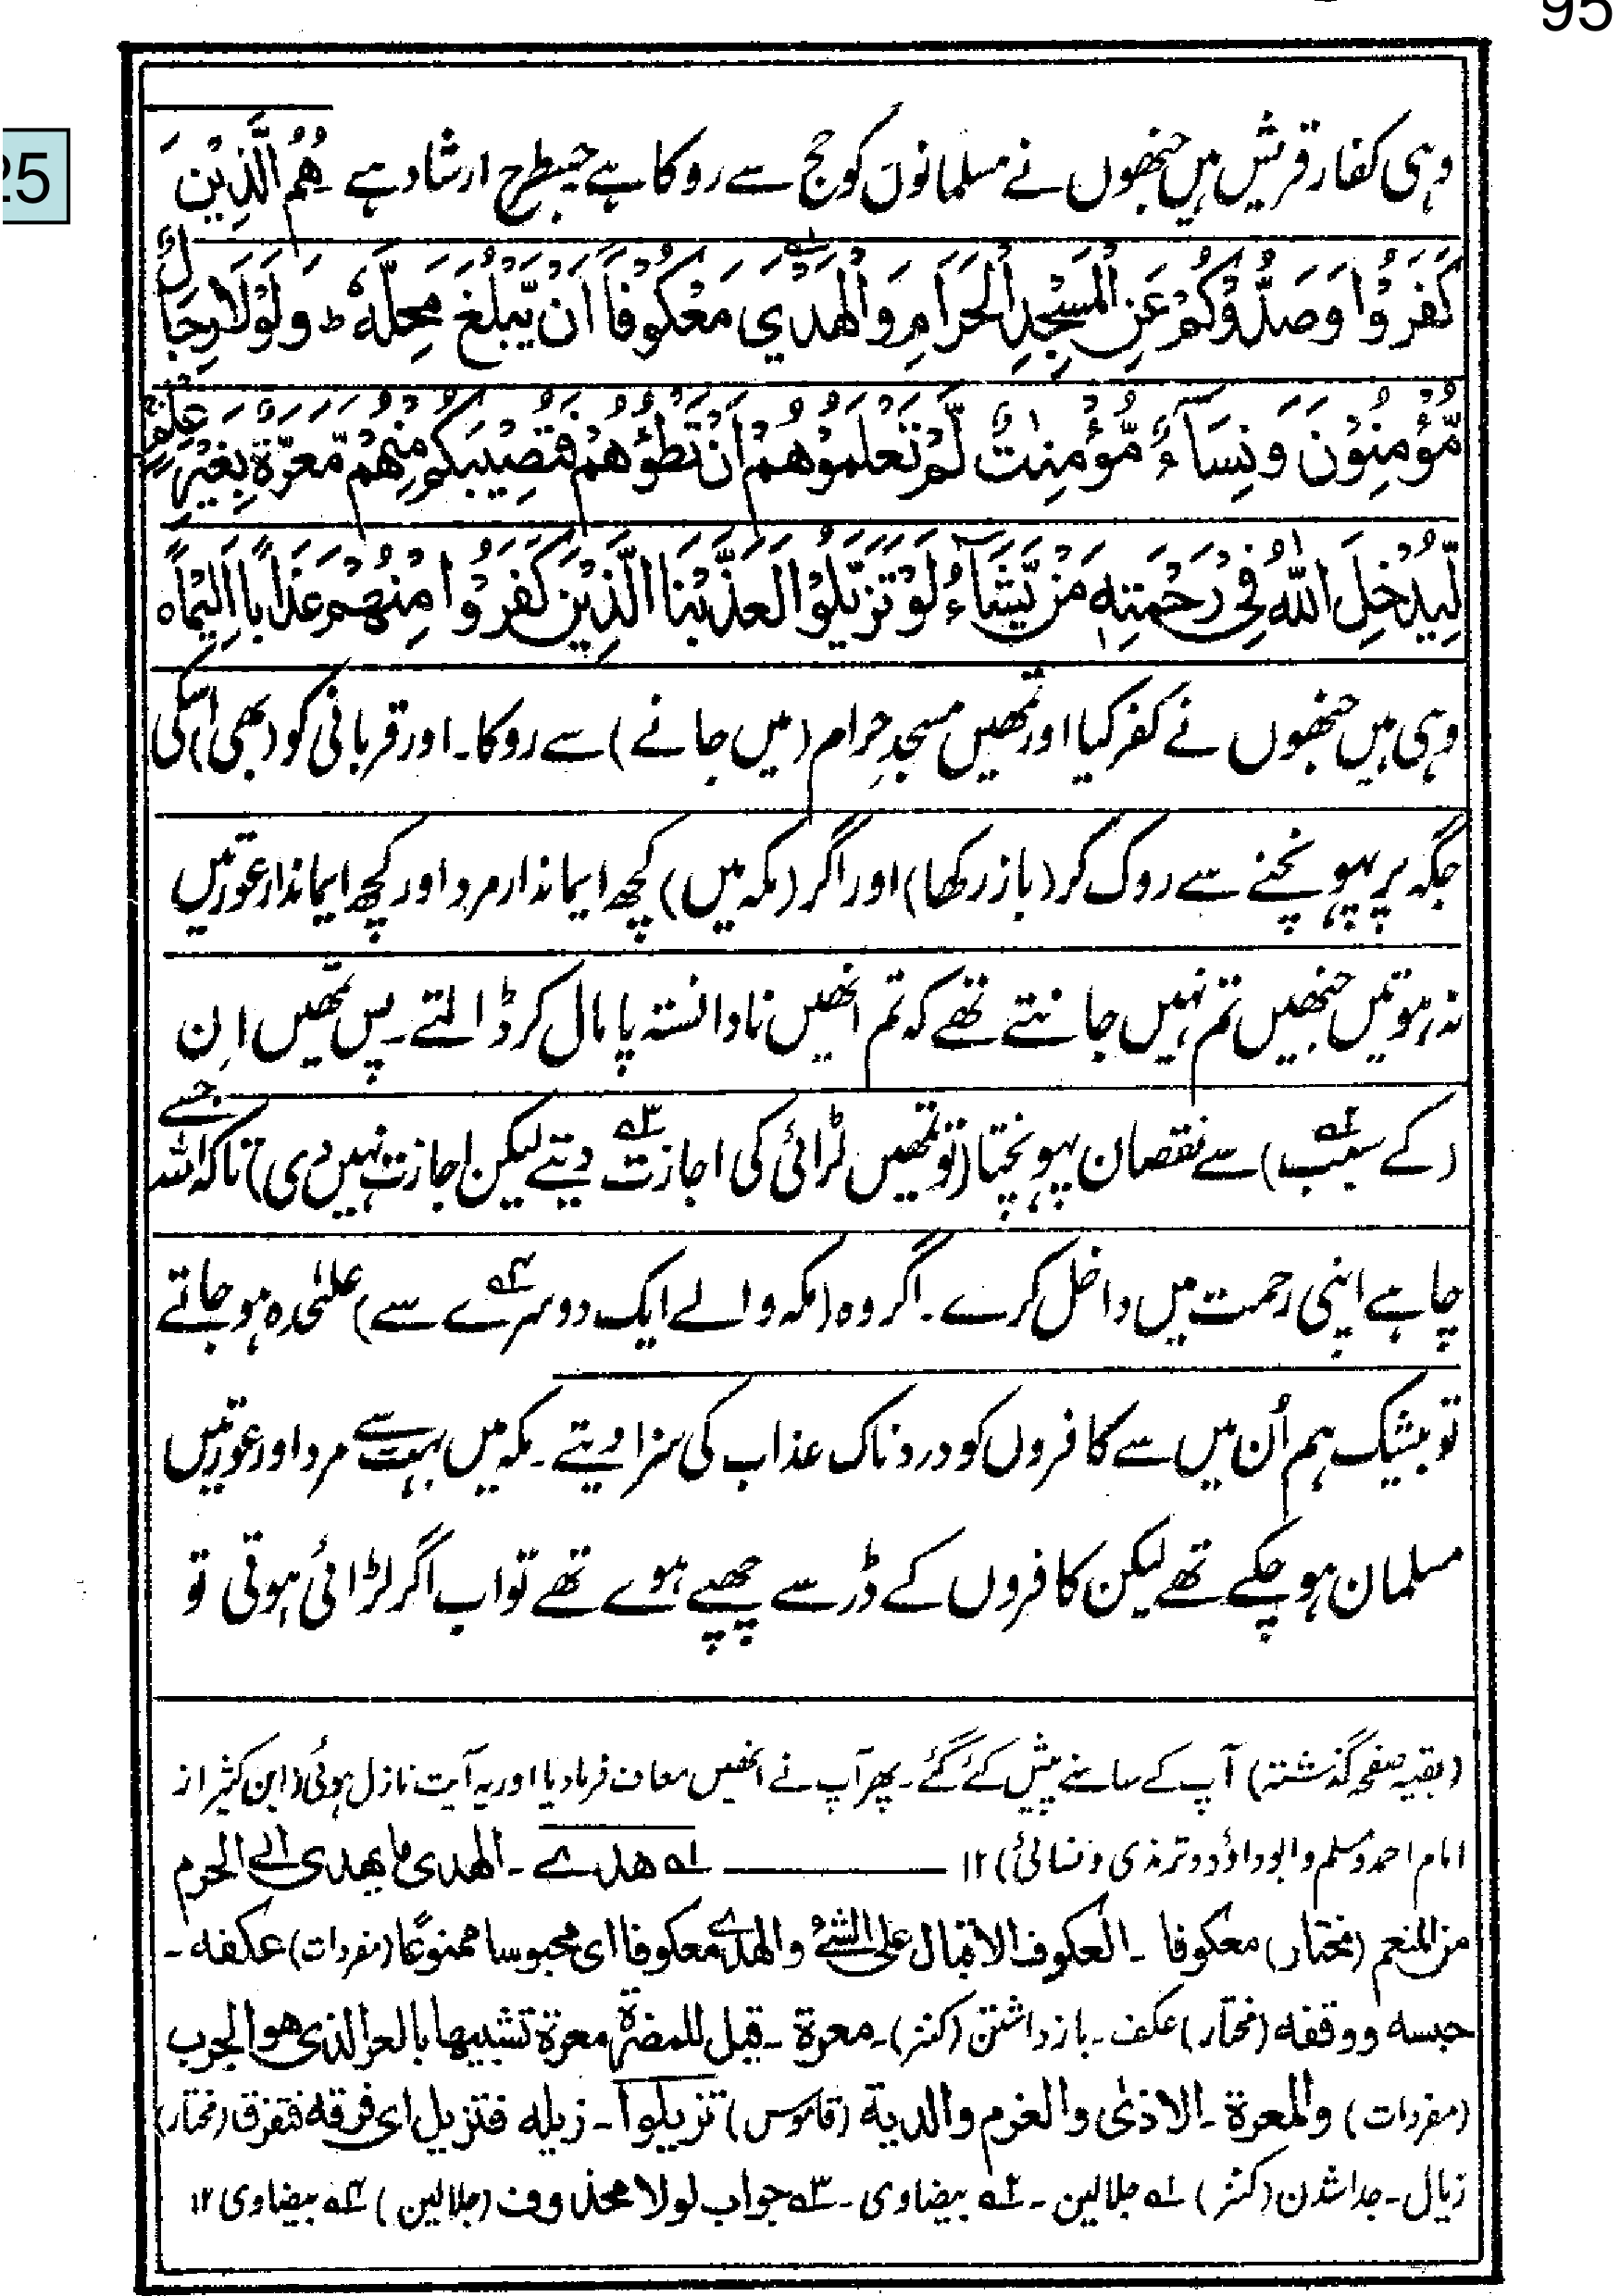 95
25
وہی کفار قریش ہیں جنھوں نے مسلمانوں کو حج سے روکا ہے جسطرح ارشاد ہے هُمُ الَّذِيْنَ
كَفَرُوْا وَصَدُّوْكُمْ عَنِ الْمَسْجِدِ الْحَرَامِ وَالْهَدْيَ ۱؎ مَعْكُوْفاً اَنْ يَّبْلُغَ مَحِلَّهٗ ط وَلَوْلَا رِجَالٌ
مُّؤْمِنُوْنَ وَنِسَآءٌ مُّؤْمِنٰتٌ لَّمْ تَعْلَمُوْهُمْ اَنْ تَطَؤُهُمْ فَتُصِيْبَكُمْ مِنْهُمْ مَّعَرَّةٌ بِغَيْرِ عِلْمٍ
لِّيُدْخِلَ اللّٰهُ فِيْ رَحْمَتِهٖ مَنْ يَّشَآءُ لَوْ تَزَيَّلُوْا لَعَذَّبْنَا الَّذِيْنَ كَفَرُوْا مِنْهُمْ عَذَابًا اَلِيْمًا ہ
وہی ہیں جنھوں نے کفر کیا اور تمھیں مسجدِ حرام (میں جانے) سے روکا۔ اور قربانی کو (بھی) اسکی
جگہ پر پہونچنے سے روک کر (باز رکھا) اور اگر (مکہ میں) کچھ ایماندار مرد اور کچھ ایماندار عورتیں
نہ ہوتیں جنھیں تم نہیں جانتے تھے کہ تم انھیں نادانستہ پامال کر ڈالتے۔ پس تمھیں ان
(کے سبب ۲؎) سے نقصان پہونچتا (تو تمھیں لڑائی کی اجازت ۳؎ دیتے لیکن اجازت نہیں دی) تاکہ اللہ جسے
چاہے اپنی رحمت میں داخل کرے۔ اگر وہ (مکہ والے ایک دوسرے ۴؎ سے) علٰحدہ ہو جاتے
تو بیشک ہم اُن میں سے کافروں کو دردناک عذاب کی سزا دیتے۔ مکہ میں بہت سے مرد اور عورتیں
مسلمان ہو چکے تھے لیکن کافروں کے ڈر سے چھپے ہوے تھے تو اب اگر لڑائی ہوتی تو
(بقیہ صفحہ گذشتہ) آپ کے سامنے پیش کئے گئے۔ پھر آپ نے انھیں معاف فرما دیا اور یہ آیت نازل ہوئی (ابن کثیر از
امام احمد ومسلم وابو داؤد وترمذی ونسائی) ۱۲ ——— ۱؎ هدے۔ الهدی ما یهدی الے الحرم
من النعم (مختار) معکوفا۔ العکوف الاقبال علی الشئ والهدے معکوفا ای محبوسا ممنوعًا (مفردات) عکفه۔
حبسه ووقفه (مختار) عکف۔ بازداشتن (کنز)۔ معرة۔ قیل للمضرة معرة تشبیها بالعر الذی هو الجرب
(مفردات) والمعرة۔ الاذی والغرم والدیة (قاموس) تزیلوا۔ زیله فتزیل ای فرقه فتفرق (مختار)
زیال۔ جدا شدن (کنز) ۱؎ جلالین۔ ۲؎ بیضاوی۔ ۳؎ جواب لولا محذوف (جلالین) ۴؎ بیضاوی ۱۲